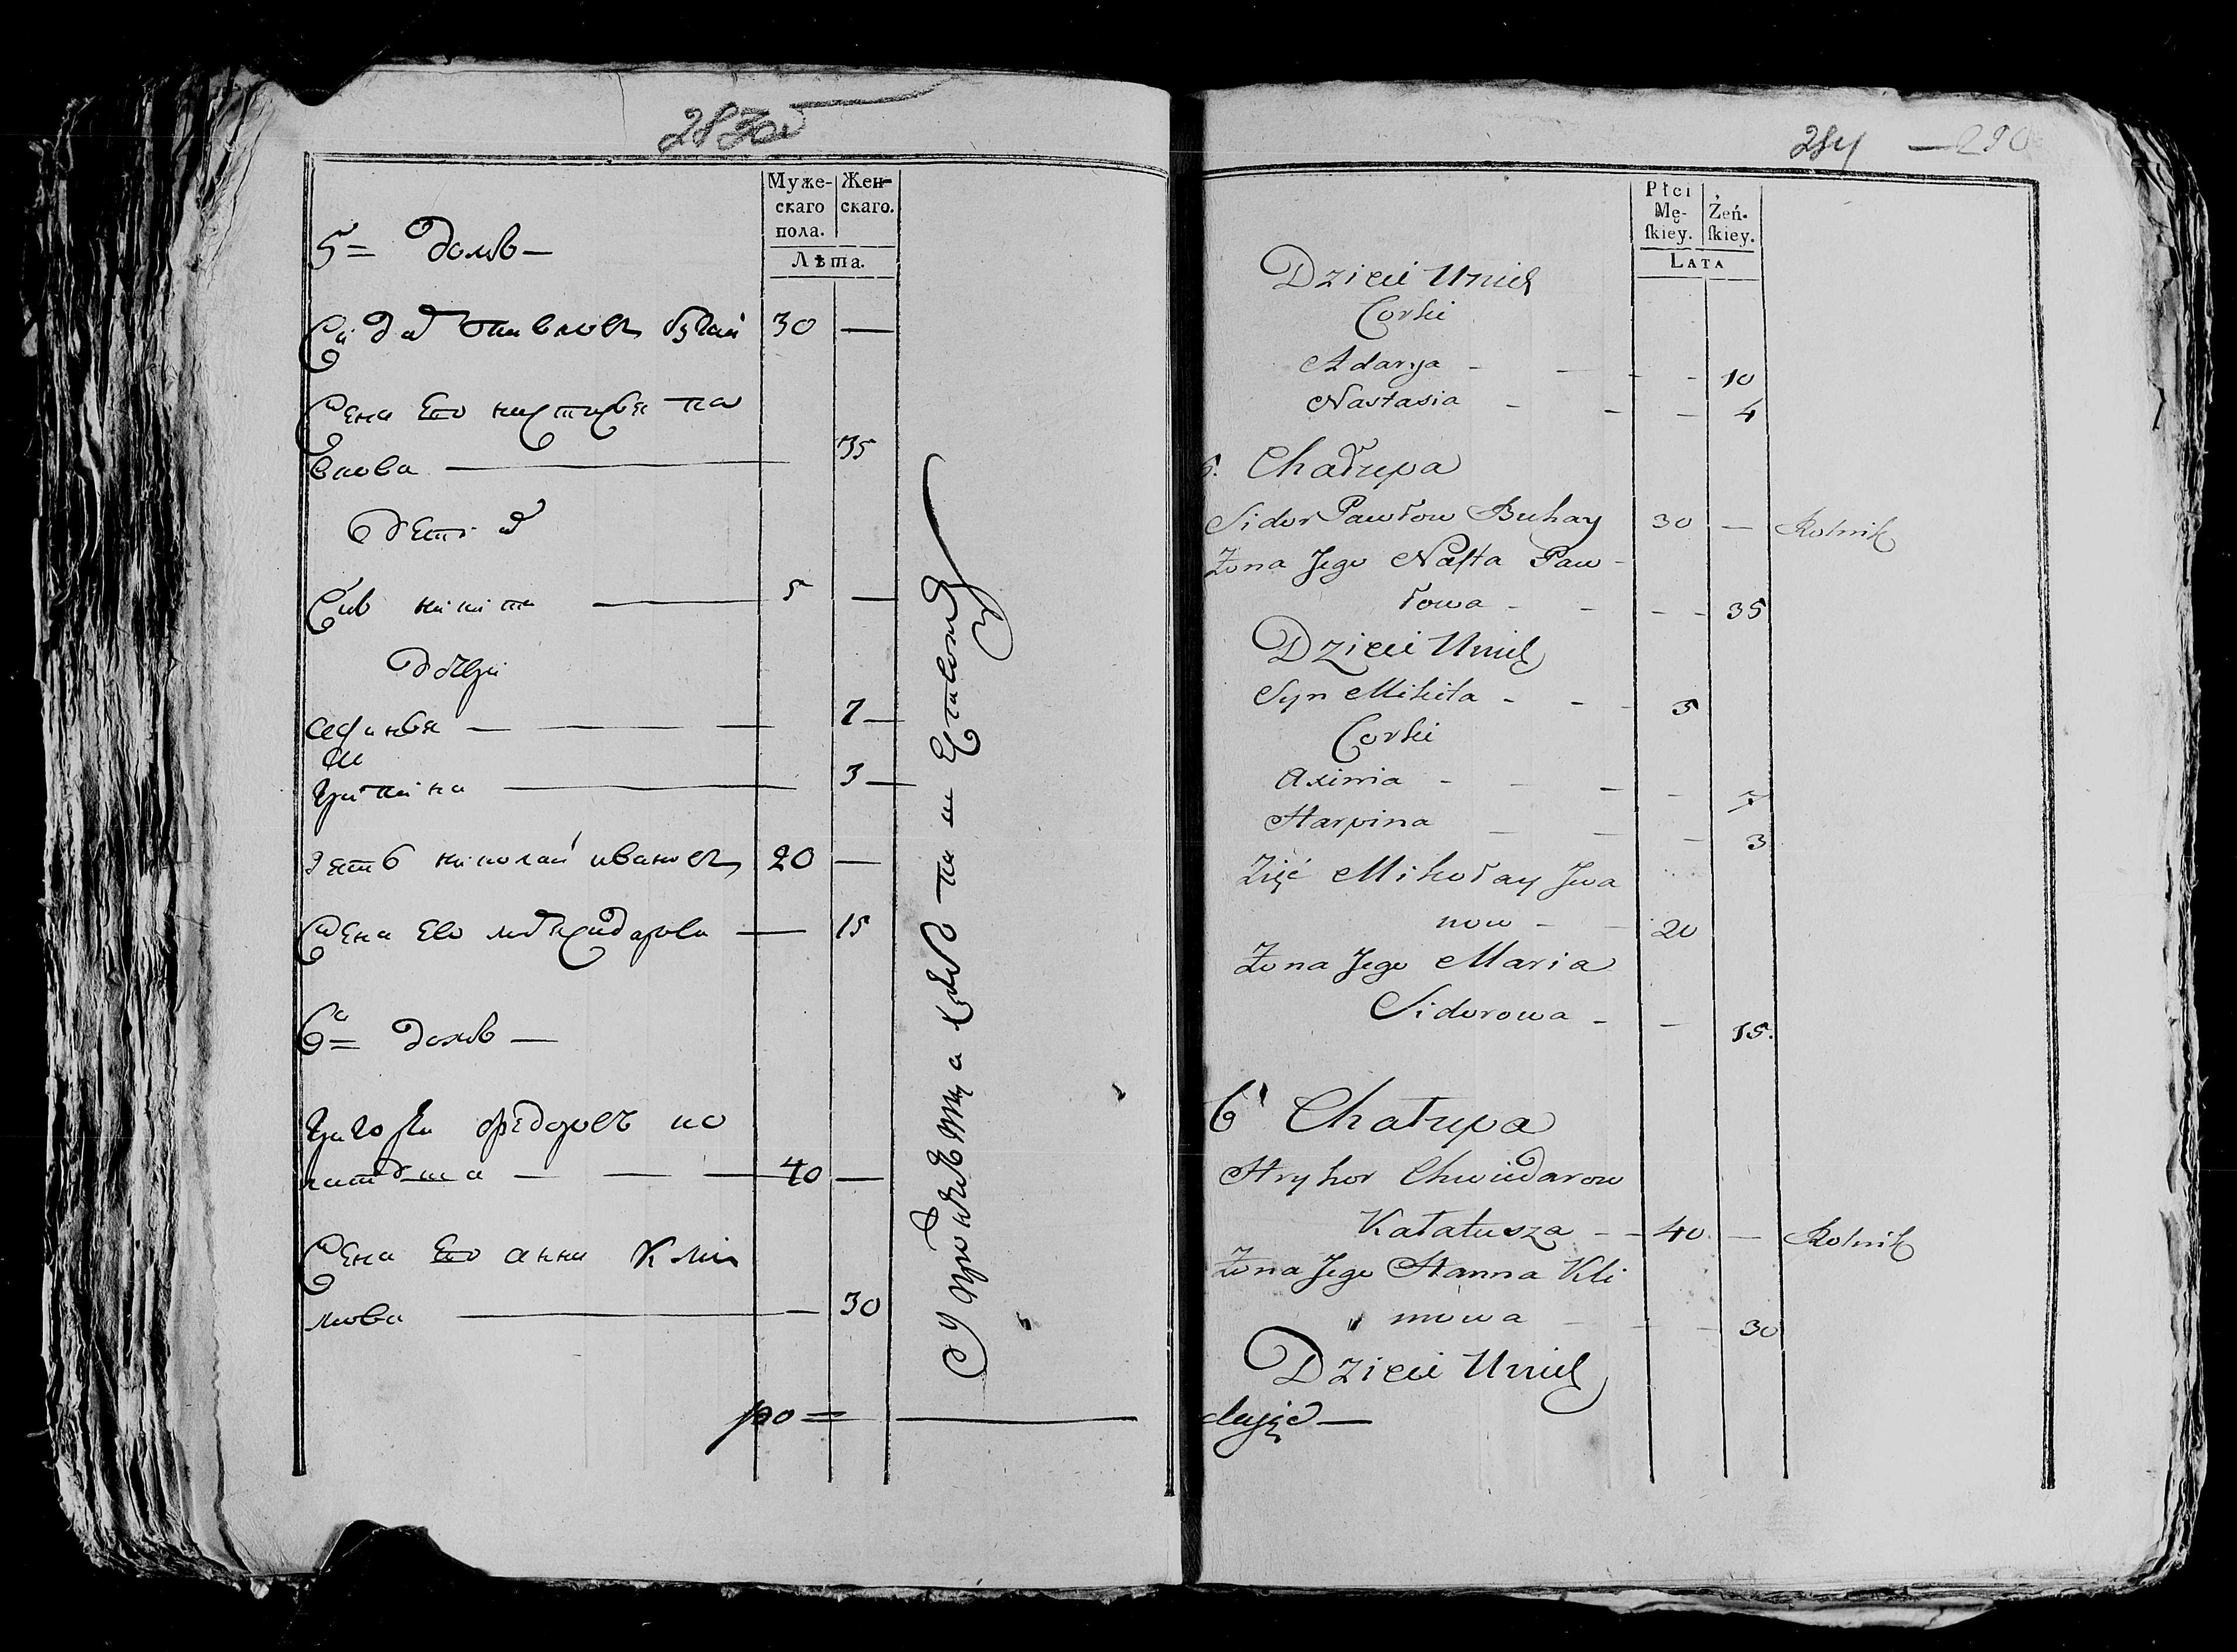 283об
Муже- Жен-
скаго скаго.
пола.
Лѣта.
5= домъ —
Сидаръ павловъ бугай 30 —
Жена его настасья па
влова — 35
дети ихъ
Сынъ никита — 5 —
дочери
аксинья — 7 —
3 —
Зять николай ивановъ 20 —
Жена его марья сидарова — 15
6= домъ —
Григорей федоровъ ка
латуша — 40 —
Жена его анна Кли
мова — 30
284 — 290
Płci
Mę- Żeń-
ſkiey. ſkiey.
LATA
Dzieci Unich
Corki
Adarya - - - - 10
Nastasia - - - 4
5. Chałupa
Sidor Pawłow Buhay 30 — Rolnik
Żona Jego Nasta Paw -
łowa - - - - 35
Dzieci Unich
Syn Mikita - - - 5
Corki
Axinia - - - - 7
Harpina - - - 3
Zięć Mikołay Jwa
now - - 20
Żona Jego Maria
Sidorowa - - 15.
6 Chałupa
Hryhor Chwiedarow
Kałatusza - - 40. — Rolnik
Żona Jego Hanna Kli
mowa - - - 30
Dzieci Unich